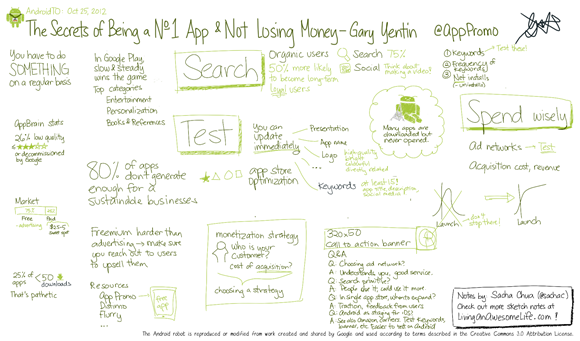 AndroidTO: Oct 25, 2012
The Secrets of Being a Nº1 App & Not Losing Money - Gary Yentin @AppPromo
You have to do
SOMETHING
on a regular basis
In Google Play,
slow & steady
wins the game
Top categories
Entertainment
Personalization
Books & References
Search
Organic users
50% more likely
to become long-term
loyal users
Search 75%
Social
Think about
making a video!
① Keywords
Test these!
② Frequency of
keywords
③ Net installs
(-uninstalls)
AppBrain stats
26% low quality
or decommissioned
by Google
80% of apps
don't generate
enough for a
sustainable business
Test
app store
optimization
You can
update
immediately
Presentation
App name
Logo
high quality
Keywords
at least 15!
Many apps are
downloaded but
never opened.
Spend wisely
Ad networks → Test
Acquisition cost, revenue
Launch
don't
stop there!
Launch
Market
Free
Paid
- advertising
sweet spot
25% of
apps
<50
downloads
That's pathetic
Freemium harder than
advertising → make sure
you reach out to users
to upsell them.
Resources
App Promo
Distimo
Flurry
...
Free app
monetization strategy
Who is your
customer?
Cost of acquisition?
choosing a strategy
320x50
Call to action banner
Q&A
Q: Choosing ad network?
A: Understands you, good service.
Q: Search primitive?
A: People don't; could use it more
Q: In single app store, when to expand?
A: Traction, feedback from users
Q: Android as staging for iOS?
A: See also Amazon, others. Test keywords,
banner, etc. Easier to test on Android
Notes by: Sacha Chua (@sachac)
Check out more sketch notes at
LivingAnAwesomeLife.com!
The Android robot is reproduced or modified from work created and shared by Google and used according to terms described in the Creative Commons 3.0 Attribution License.